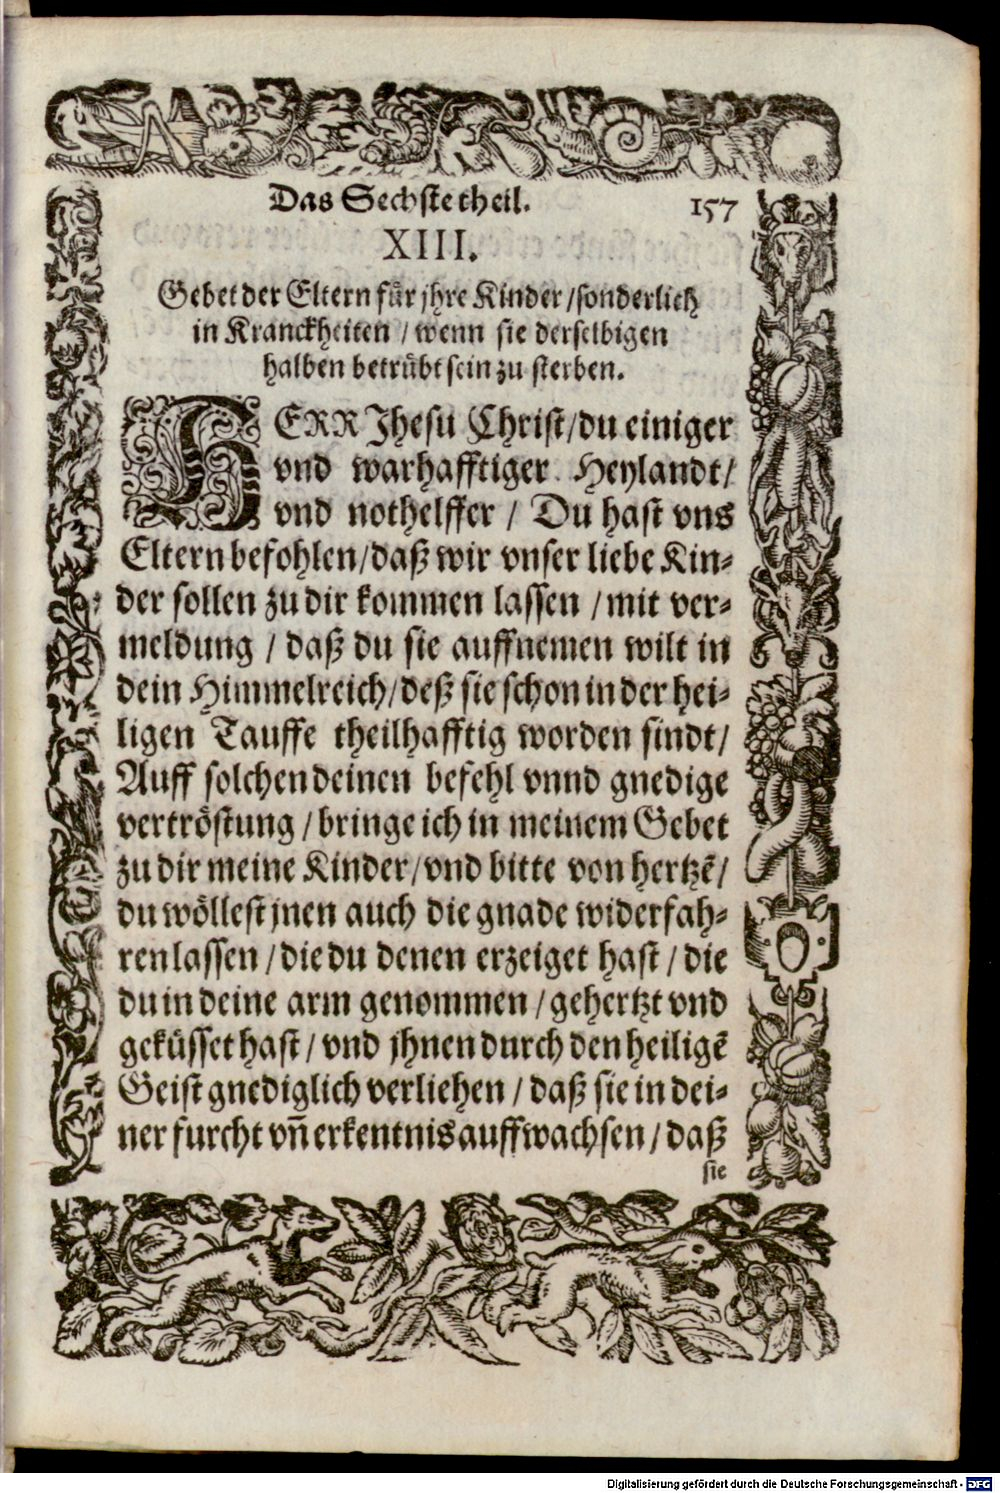 Das Sechste theil. 157
XIII.
Gebet der Eltern für jhre Kinder / sonderlich
in Kranckheiten / wenn sie derselbigen
halben betrübt sein zu sterben.
HERR Jhesu Christ / du einiger
vnd warhafftiger Heylandt /
vnd nothelffer / Du hast vns
Eltern befohlen / daß wir vnser liebe Kin-
der sollen zu dir kommen lassen / mit ver-
meldung / daß du sie auffnemen wilt in
dein Himmelreich / deß sie schon in der hei-
ligen Tauffe theilhafftig worden sindt /
Auff solchen deinen befehl vnnd gnedige
vertröstung / bringe ich in meinem Gebet
zu dir meine Kinder / vnd bitte von hertzē /
du wöllest jnen auch die gnade widerfah-
ren lassen / die du denen erzeiget hast / die
du in deine arm genommen / gehertzt vnd
geküsset hast / vnd jhnen durch den heiligē
Geist gnediglich verliehen / daß sie in dei-
ner furcht vn̄ erkentnis auffwachsen / daß
sie
Digitalisierung gefördert durch die Deutsche Forschungsgemeinschaft - DFG